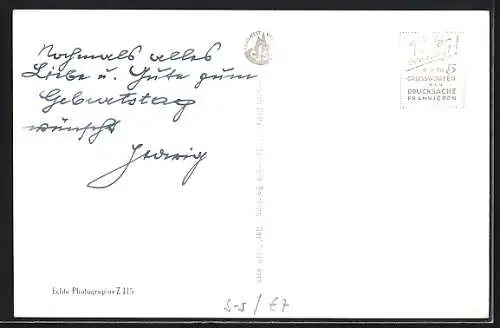 Nochmals alles
Liebe u. Gute zum
Geburtstag
wünscht
Hedwig
BIS ZU 5
GRUSSWORTEN
ALS
DRUCKSACHE
FRANKIEREN
Echte Photographie Z 115
S-S/E7